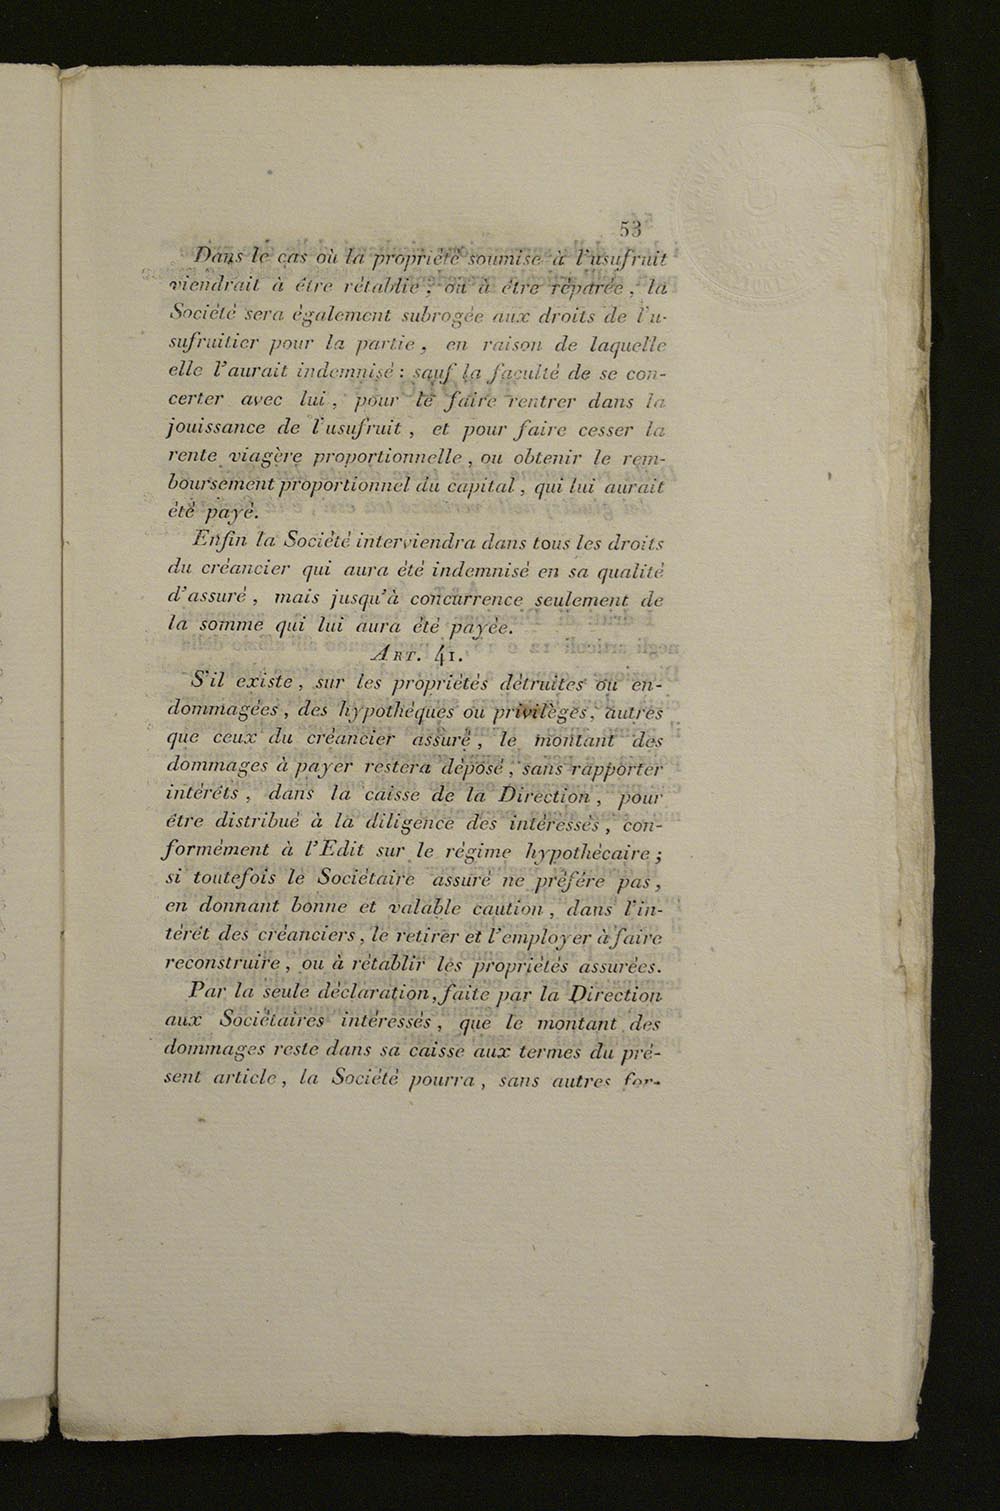 53
Dans le cas où la propriété soumise à l'usufruit
viendrait à être rétablie, ou à être réparée, la
Société sera également subrogée aux droits de l'u-
sufruitier pour la partie, en raison de laquelle
elle l'aurait indemnisé : sauf la faculté de se con-
certer avec lui, pour le faire rentrer dans la
jouissance de l'usufruit, et pour faire cesser la
rente viagère proportionnelle, ou obtenir le rem-
boursement proportionnel du capital, qui lui aurait
été payé.
Enfin la Société interviendra dans tous les droits
du créancier qui aura été indemnisé en sa qualité
d'assuré, mais jusqu'à concurrence seulement de
la somme qui lui aura été payée.
ART. 41.
S'il existe, sur les propriétés détruites ou en-
dommagées, des hypothéques ou privilèges, autres
que ceux du créancier assuré, le montant des
dommages à payer restera déposé, sans rapporter
intérêts, dans la caisse de la Direction, pour
être distribué à la diligence des intéressés, con-
formément à l'Edit sur le régime hypothécaire ;
si toutefois le Sociétaire assuré ne préfére pas,
en donnant bonne et valable caution, dans l'in-
térêt des créanciers, le retirer et l'employer à faire
reconstruire, ou à rétablir les propriétés assurées.
Par la seule déclaration, faite par la Direction
aux Sociétaires intéressés, que le montant des
dommages reste dans sa caisse aux termes du pré-
sent article, la Société pourra, sans autres for-